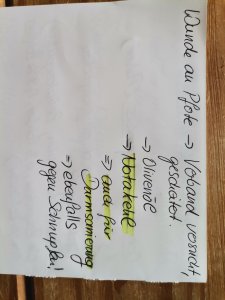 Wunde an Pfote → Verband versucht,
gescheitert.
→ Olivenöl
→ Notakehl
⇒ auch für
Darmsanierung
⇒ ebenfalls
gegen Schnupfen!